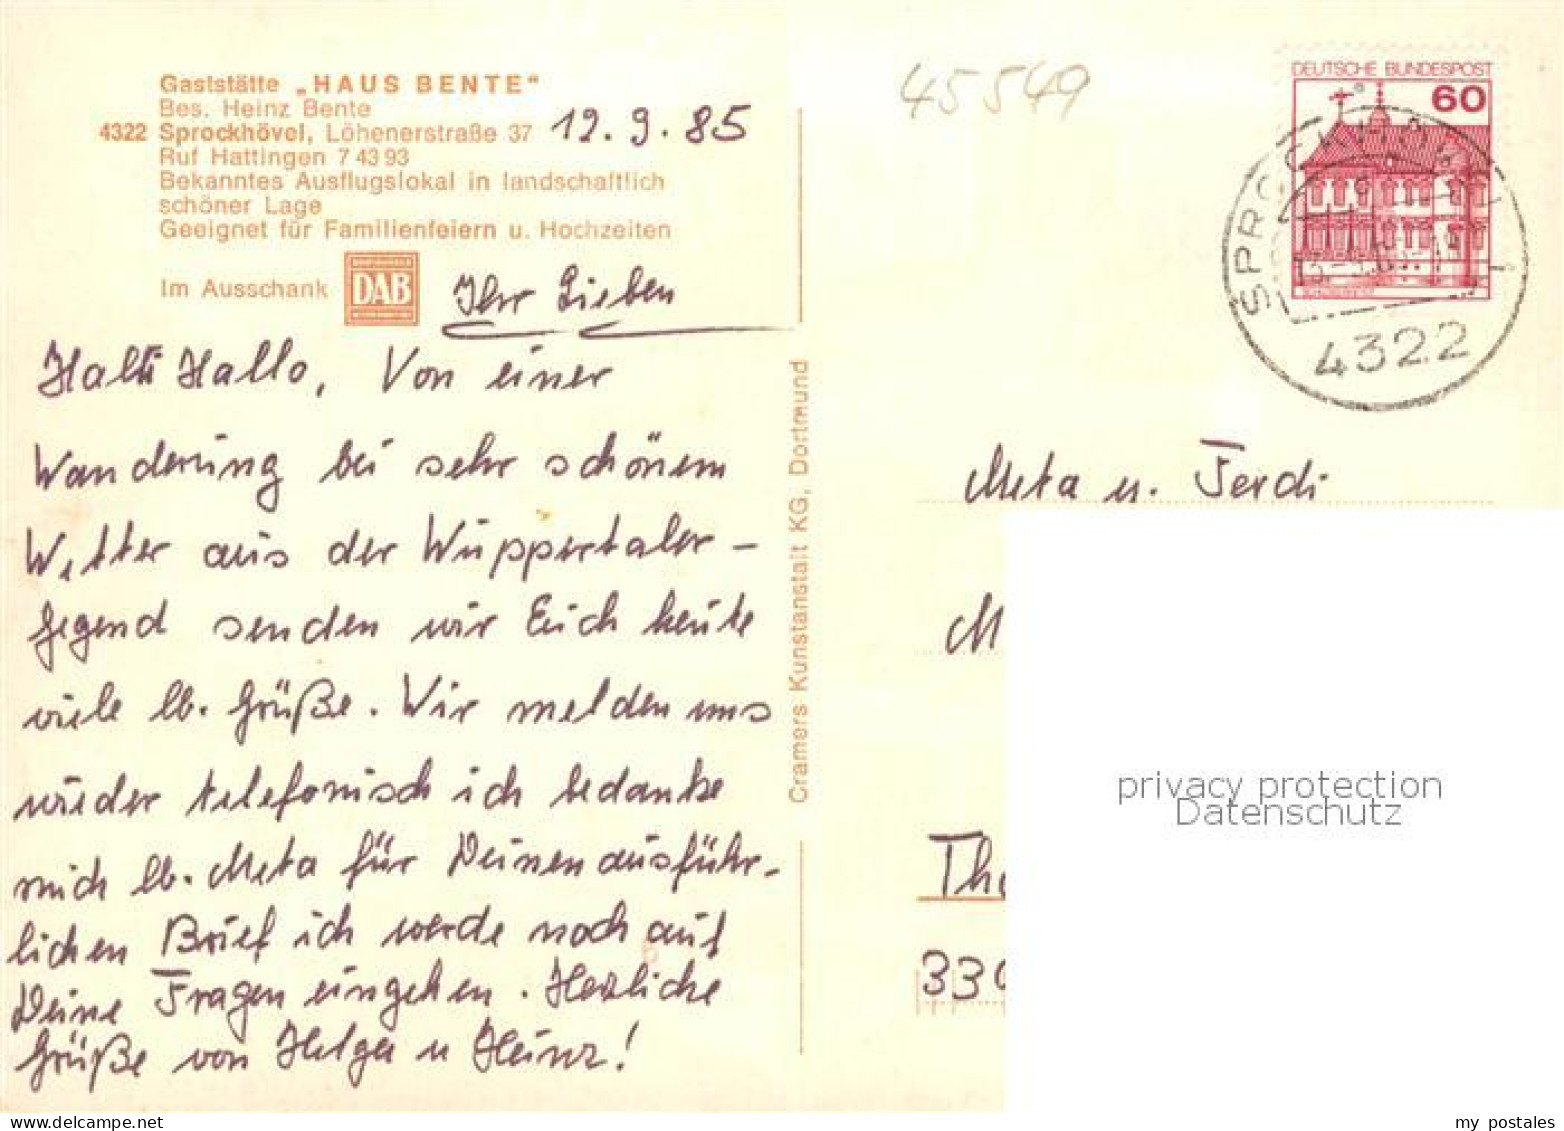 Gaststätte „HAUS BENTE"
Bes. Heinz Bente
4322 Sprockhövel, Löhenerstraße 37
Ruf Hattingen 7 43 93
Bekanntes Ausflugslokal in landschaftlich
schöner Lage
Geeignet für Familienfeiern u. Hochzeiten
Im Ausschank DAB
12.9.85
Ihr Lieben
Hallo, Von einer
Wanderung bei sehr schönem
Wetter aus der Wuppertaler-
Gegend senden wir Euch heute
viele lb. Grüße. Wir melden uns
wieder telefonisch ich bedanke
mich lb. Meta für Deinen ausführ-
lichen Brief ich werde noch auf
Deine Fragen eingehen. Herzliche
Grüße von Helga u Heinz!
Cramers Kunstanstalt KG, Dortmund
45549
DEUTSCHE BUNDESPOST
60
SPROCKHÖVEL 1
4322
Meta u. Ferdi
M
privacy protection
Datenschutz
Th
33
my postales